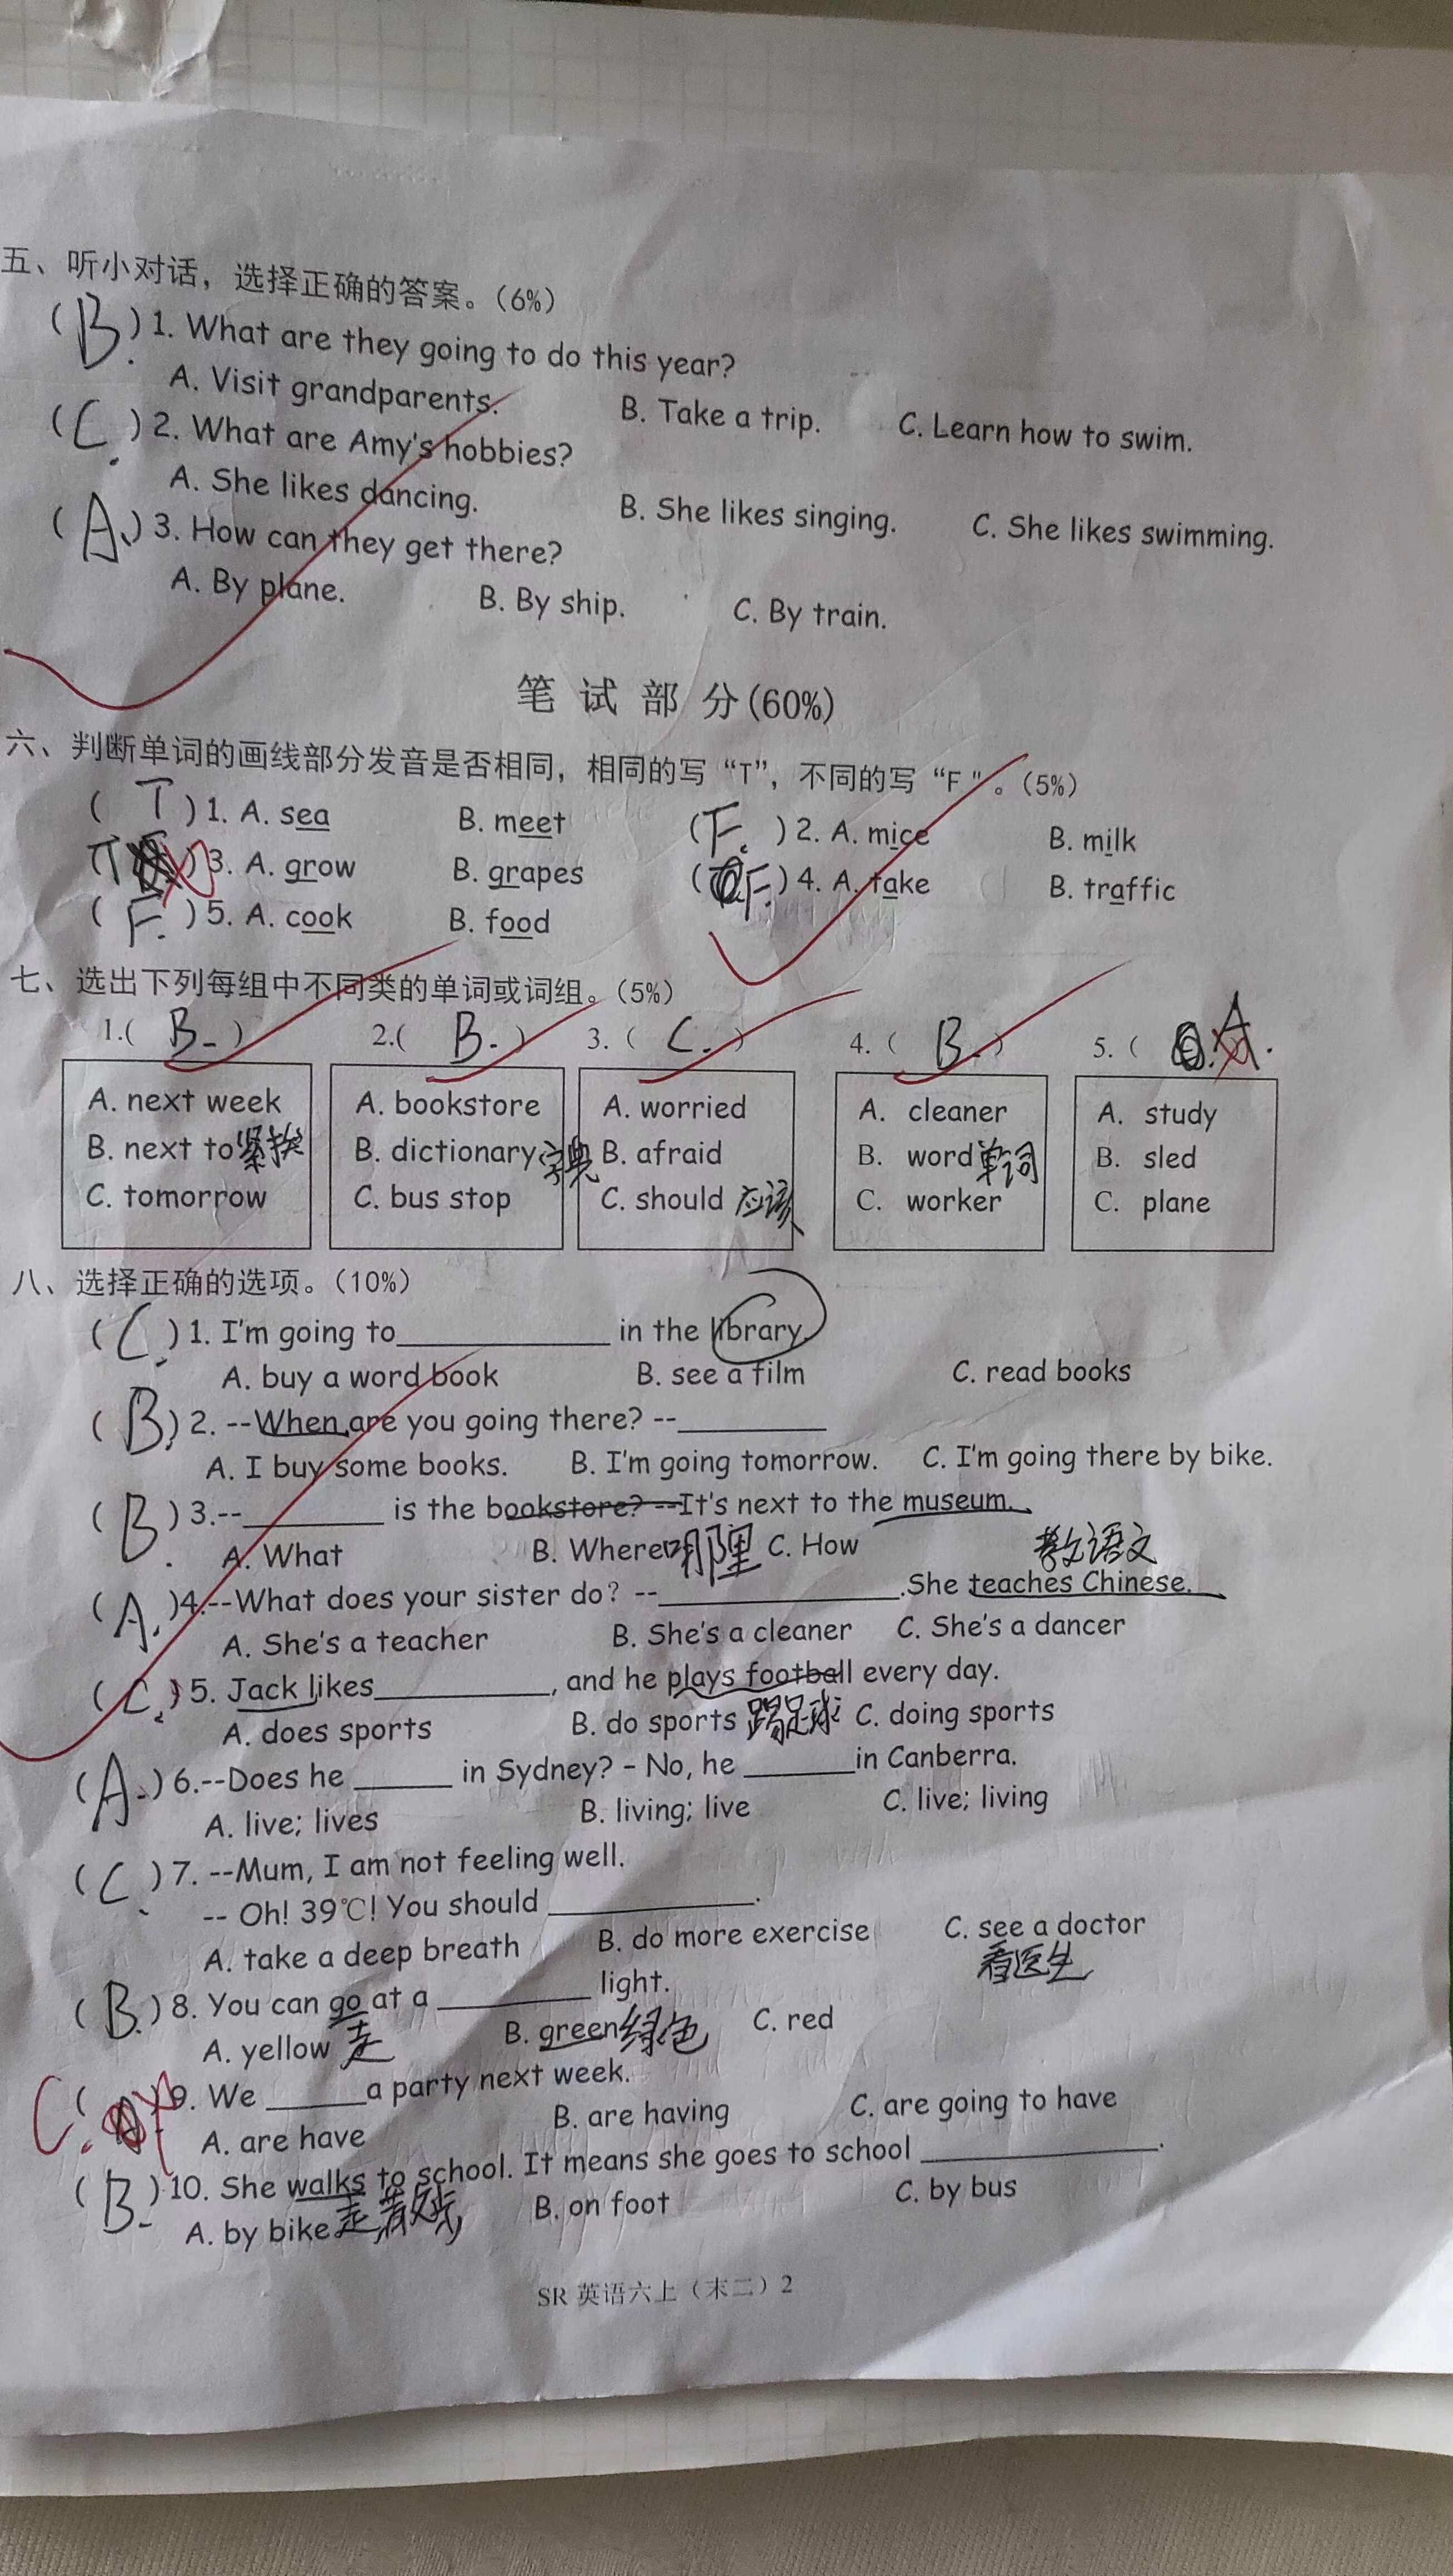 五、听小对话，选择正确的答案。（6%）
( B. ) 1. What are they going to do this year?
A. Visit grandparents. B. Take a trip. C. Learn how to swim.
( C. ) 2. What are Amy's hobbies?
A. She likes dancing. B. She likes singing. C. She likes swimming.
( A. ) 3. How can they get there?
A. By plane. B. By ship. C. By train.
笔 试 部 分(60%)
六、判断单词的画线部分发音是否相同，相同的写“T”，不同的写“F”。（5%）
( T ) 1. A. sea B. meet ( F. ) 2. A. mice B. milk
( T ) 3. A. grow B. grapes ( F. ) 4. A. take B. traffic
( F. ) 5. A. cook B. food
七、选出下列每组中不同类的单词或词组。（5%）
1.( B. ) 2.( B. ) 3. ( C. ) 4. ( B. ) 5. ( A.
A. next week A. bookstore A. worried A. cleaner A. study
B. next to 紧挨 B. dictionary 字典 B. afraid B. word 单词 B. sled
C. tomorrow C. bus stop C. should 应该 C. worker C. plane
八、选择正确的选项。（10%）
( C. ) 1. I'm going to____________ in the library.
A. buy a word book B. see a film C. read books
( B. ) 2. --When are you going there? --________
A. I buy some books. B. I'm going tomorrow. C. I'm going there by bike.
( B. ) 3.--________ is the bookstore? --It's next to the museum.
A. What B. Where 哪里 C. How
教语文
( A. )4.--What does your sister do? --______________.She teaches Chinese.
A. She's a teacher B. She's a cleaner C. She's a dancer
( C. ) 5. Jack likes__________, and he plays football every day.
A. does sports B. do sports 踢足球 C. doing sports
( A. ) 6.--Does he ______ in Sydney? – No, he ______in Canberra.
A. live; lives B. living; live C. live; living
( C. ) 7. --Mum, I am not feeling well.
-- Oh! 39℃! You should ____________.
A. take a deep breath B. do more exercise C. see a doctor
看医生
( B. ) 8. You can go at a _________ light.
A. yellow 走 B. green 绿色 C. red
C. ( A. ) 9. We ______a party next week.
A. are have B. are having C. are going to have
( B. ) 10. She walks to school. It means she goes to school ______________.
A. by bike B. on foot C. by bus
SR 英语六上（末二）2